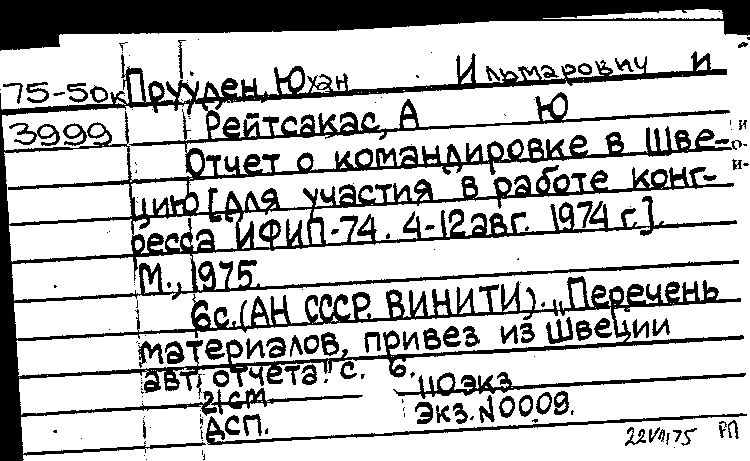 75-50к Прууден, Юхан Ильмарович и
3999 Рейтсакас, А Ю
Отчет о командировке в Шве-
цию [для участия в работе конг-
ресса ИФИП-74. 4-12 авг. 1974 г.].
М., 1975.
6с. (АН СССР. ВИНИТИ). „Перечень
материалов, привез из Швеции
авт. отчета." с. 6.
21 см. 110 экз
ДСП. Экз. №0009.
РП